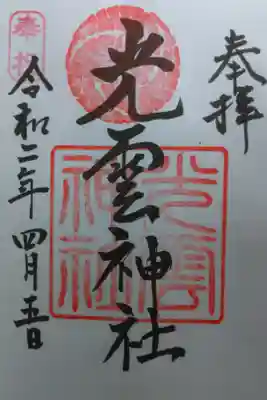 奉拝
光雲神社
令和二年四月五日
奉拝
光雲神社